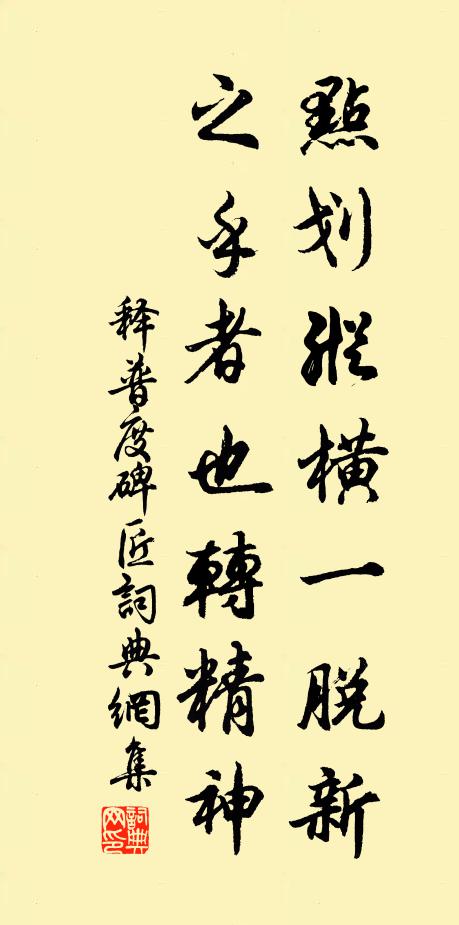 點划縱橫一脫新
之乎者也轉精神
释普度碑匠詞典網集
詞典网印